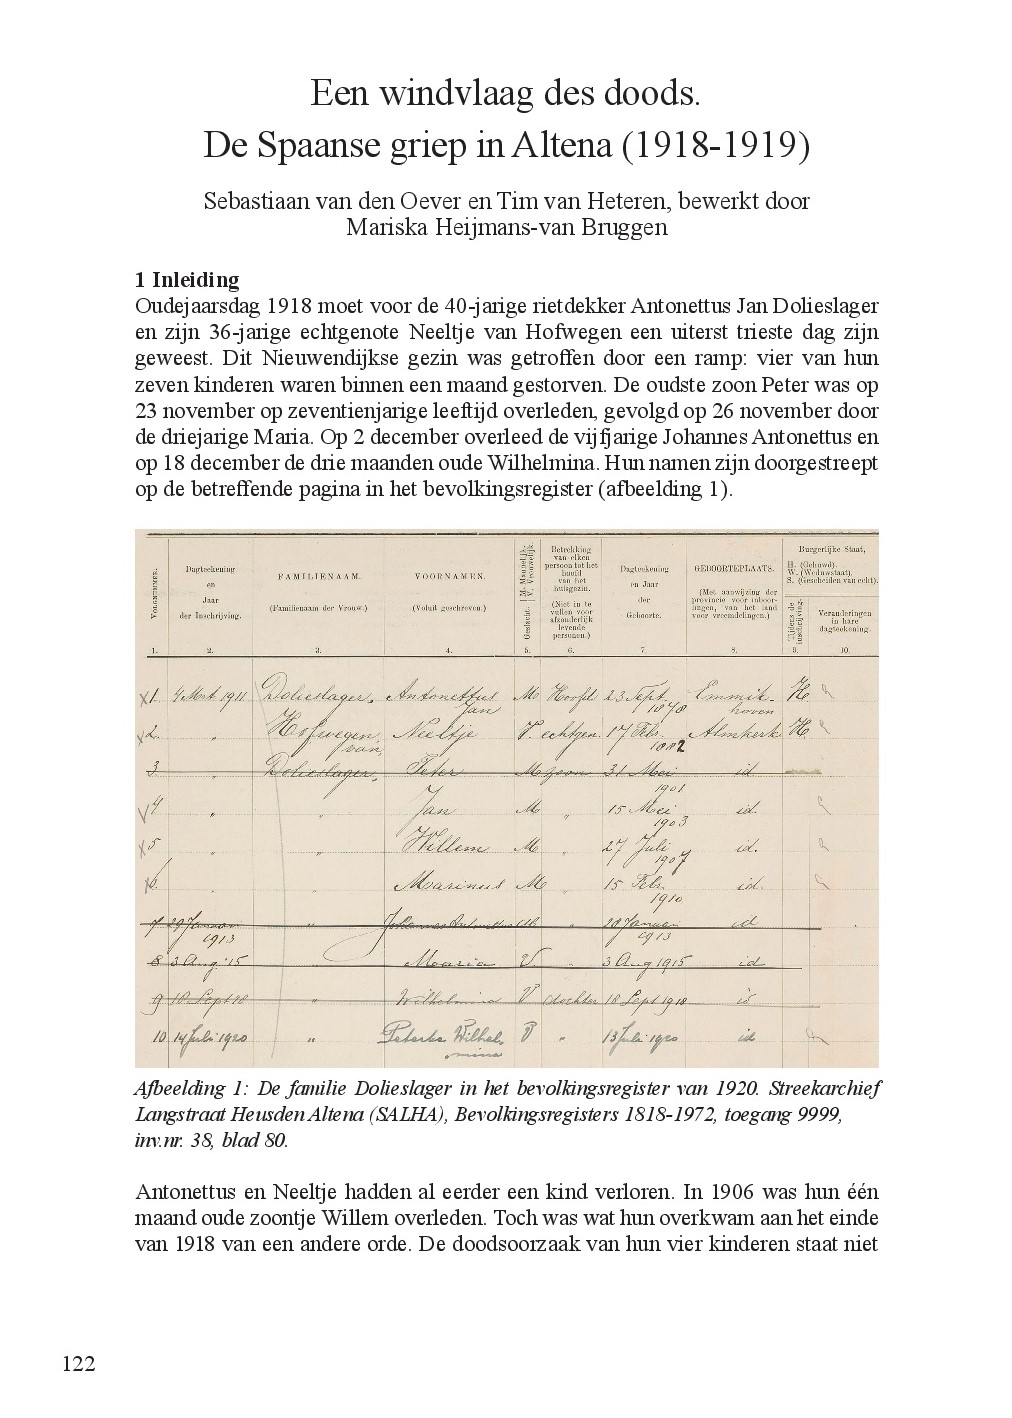 Een windvlaag des doods.
De Spaanse griep in Altena (1918-1919)
Sebastiaan van den Oever en Tim van Heteren, bewerkt door
Mariska Heijmans-van Bruggen
1 Inleiding
Oudejaarsdag 1918 moet voor de 40-jarige rietdekker Antonettus Jan Dolieslager
en zijn 36-jarige echtgenote Neeltje van Hofwegen een uiterst trieste dag zijn
geweest. Dit Nieuwendijkse gezin was getroffen door een ramp: vier van hun
zeven kinderen waren binnen een maand gestorven. De oudste zoon Peter was op
23 november op zeventienjarige leeftijd overleden, gevolgd op 26 november door
de driejarige Maria. Op 2 december overleed de vijfjarige Johannes Antonettus en
op 18 december de drie maanden oude Wilhelmina. Hun namen zijn doorgestreept
op de betreffende pagina in het bevolkingsregister (afbeelding 1).
VOLGNUMMER.
Dagteekening
en
Jaar
der Inschrijving.
FAMILIENAAM.
(Familienaam der Vrouw.)
VOORNAMEN.
(Voluit geschreven.)
Geslacht. M. Mannelijk. V. Vrouwelijk.
Betrekking
van elken
persoon tot het
hoofd
van het
huisgezin.
(Niet in te
vullen voor
afzonderlijk
levende
personen.)
Dagteekening
en Jaar
der
Geboorte.
GEBOORTEPLAATS.
(Met aanwijzing der
provincie voor inboor-
lingen, van het land
voor vreemdelingen.)
Burgerlijke Staat,
H. (Gehuwd).
W. (Weduwstaat).
S. (Gescheiden van echt).
Tijdens de
inschrijving.
Veranderingen
in hare
dagteekening.
1. 2. 3. 4. 5. 6. 7. 8. 9. 10.
1. 4 Mrt 1911 Dolieslager, Antonettus Jan M Hoofd 23 Sept. 1878 Emmikhoven H
2. " Hofwegen van Neeltje V. echtgen. 17 Feb. 1882 Almkerk H
3. " Dolieslager, Peter M zoon 31 Mei 1901 id
4. " " Jan M " 15 Mei 1903 id.
5 " " Willem M " 27 Juli 1907 id.
6. " " Marinus M " 15 Feb. 1910 id.
7 29 Januari 1913 " Johannes Antonettus M " 29 Januari 1913 id
8 3 Aug. '15 " Maria V " 3 Aug 1915 id
9 18 Sept 18 " Wilhelmina V dochter 18 Sept 1918 id
10 14 Juli 1920 " Wilhelmina V " 13 Juli 1920 id
Afbeelding 1: De familie Dolieslager in het bevolkingsregister van 1920. Streekarchief
Langstraat Heusden Altena (SALHA), Bevolkingsregisters 1818-1972, toegang 9999,
inv.nr. 38, blad 80.
Antonettus en Neeltje hadden al eerder een kind verloren. In 1906 was hun één
maand oude zoontje Willem overleden. Toch was wat hun overkwam aan het einde
van 1918 van een andere orde. De doodsoorzaak van hun vier kinderen staat niet
122